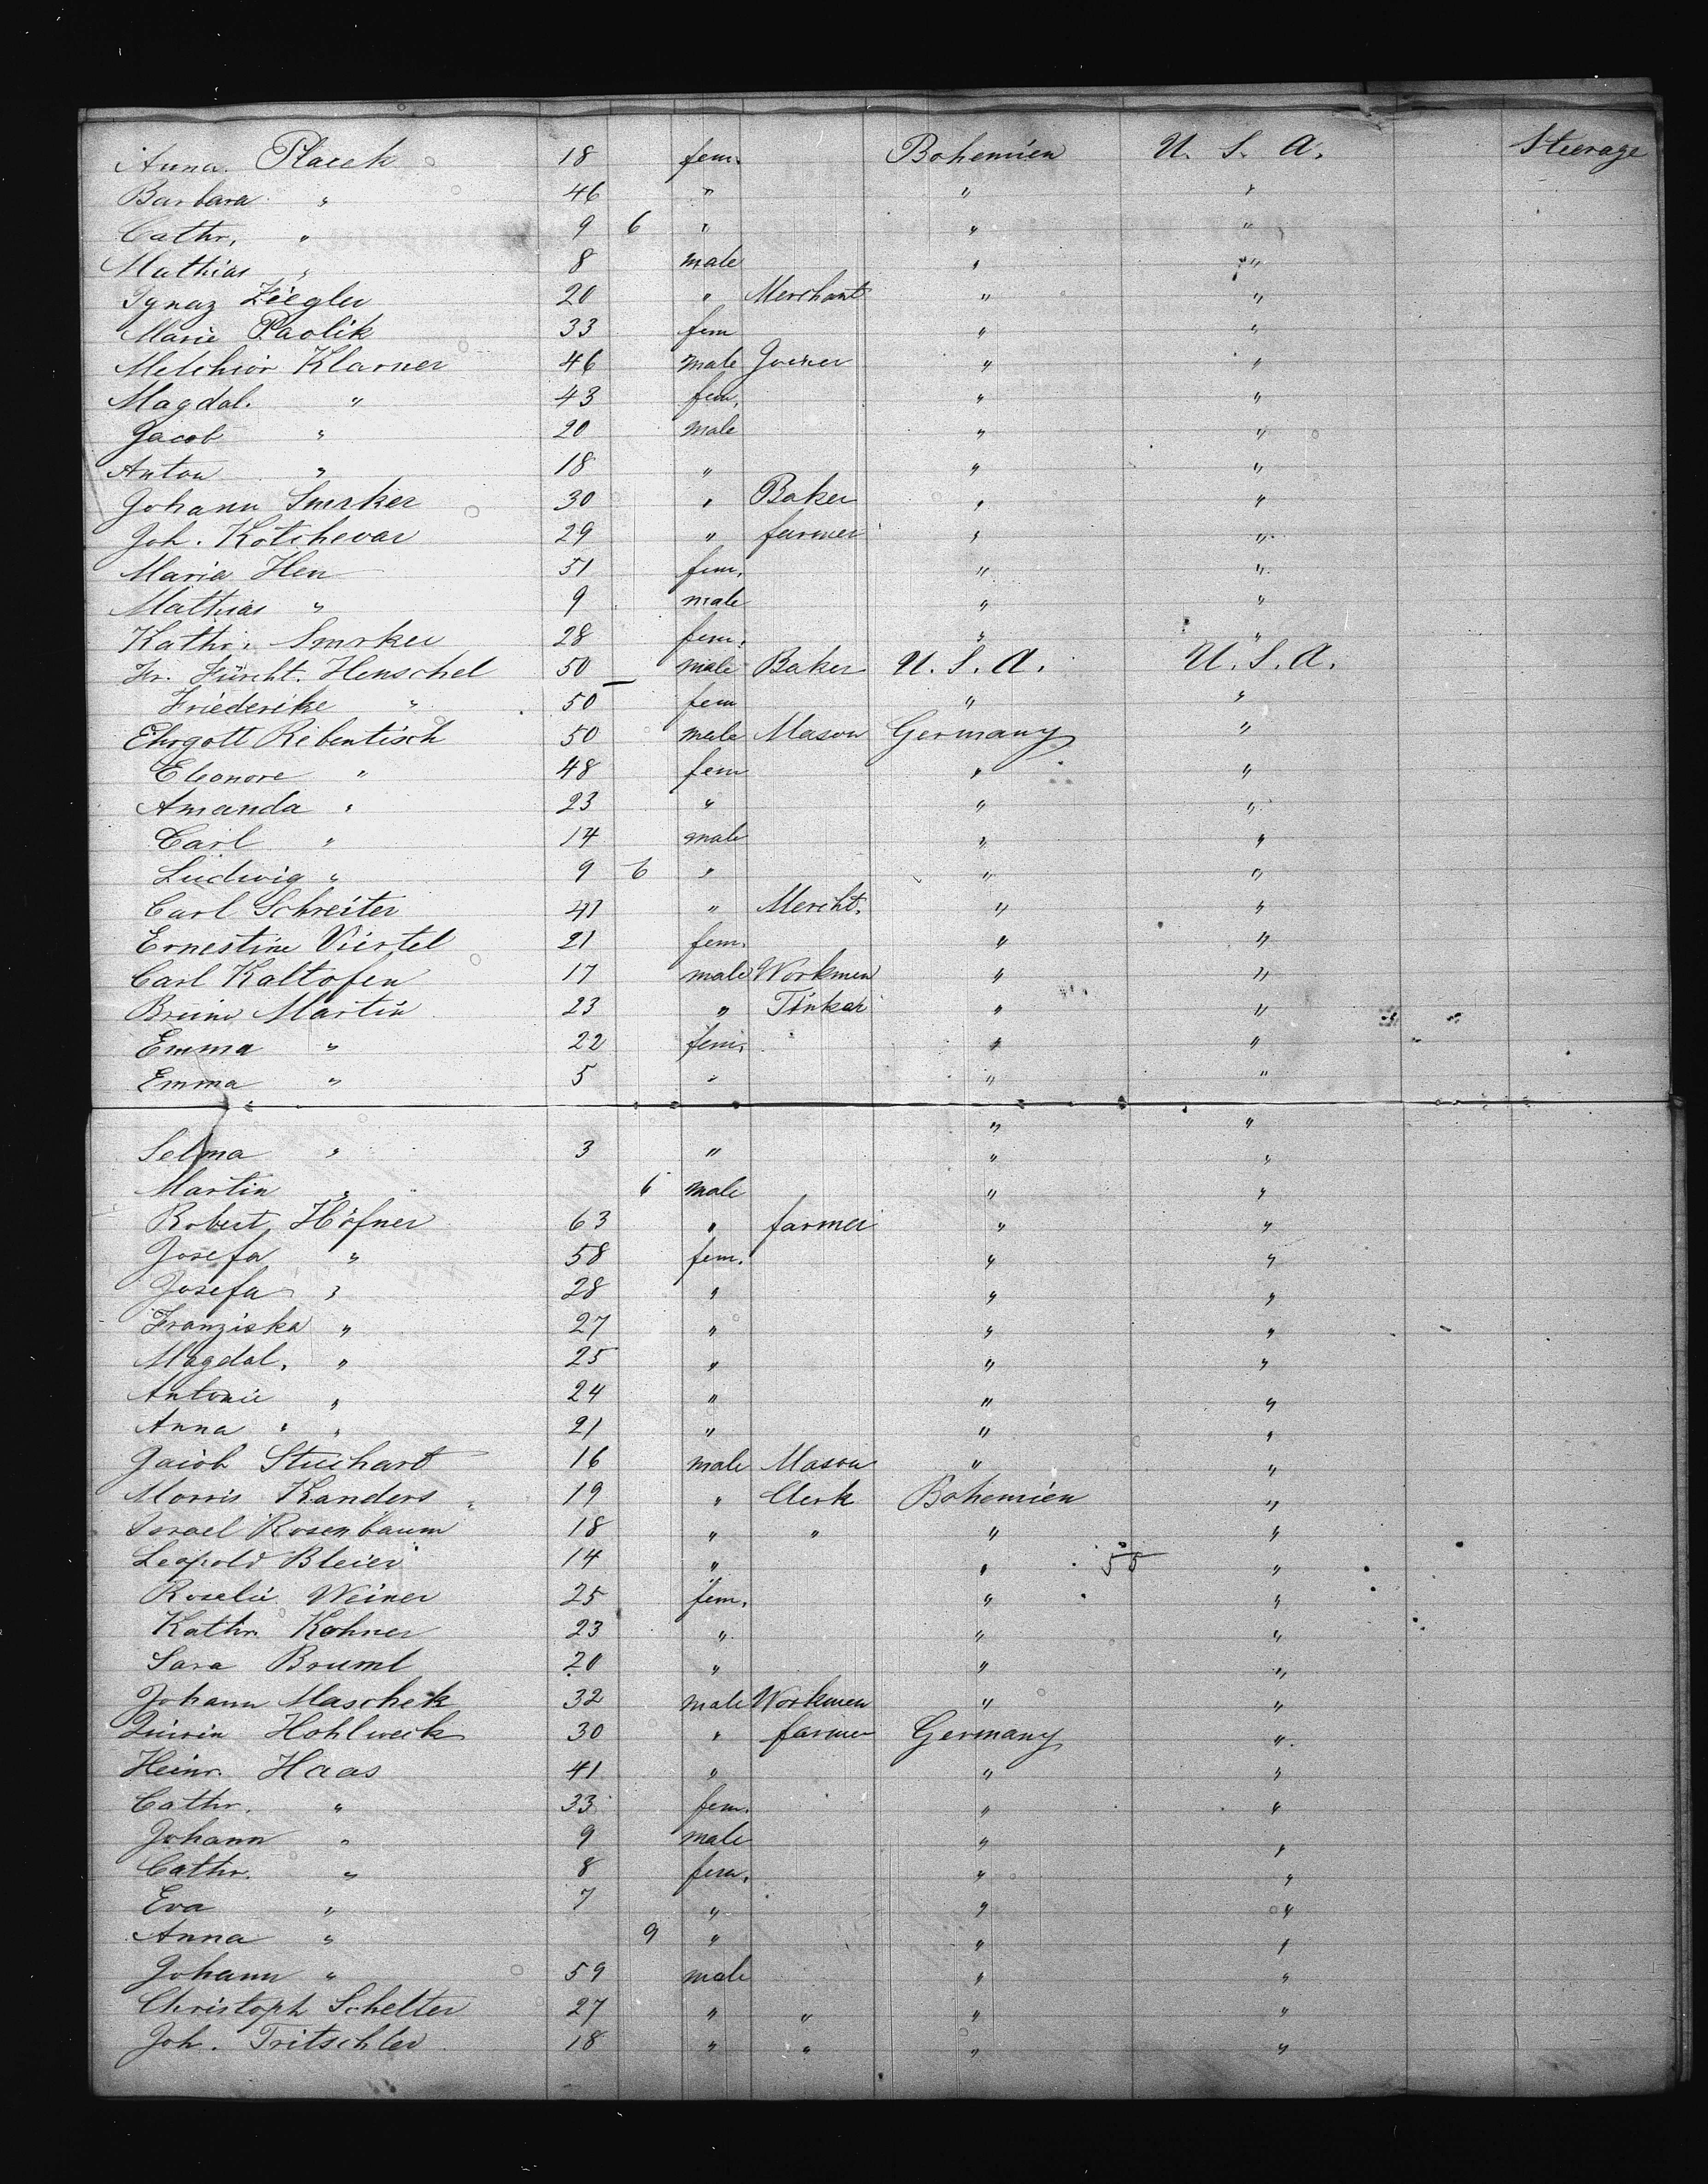 Anna Placek 18 fem. Bohemien U. S. A. Steerage
Barbara " 46 " " "
Cathr. " 9 6 " " "
Mathias " 8 male " "
Ignaz Ziegler 20 " Merchant " "
Marie Pavlik 33 fem " "
Melchior Klarner 46 male Joiner " "
Magdal. " 43 fem. " "
Jacob " 20 male " "
Anton " 18 " " "
Johann Smrker 30 " Baker " "
Joh. Kotschevar 29 " farmer " "
Maria Hen 51 fem. " "
Mathias " 9 male " "
Kathr. Smrker 28 fem. " "
Fr. Fürcht. Henschel 50 male Baker U. S. A. U. S. A.
Friederike " 50 fem " "
Ehrgott Ribentisch 50 male Mason Germany "
Eleonore " 48 fem " "
Amanda " 23 " " "
Carl " 14 male " "
Ludwig " 9 6 " " "
Carl Schreiter 41 " Mercht. " "
Ernestine Viertel 21 fem. " "
Carl Kaltofen 17 male Workmen " "
Bruno Martin 23 " Tinker " "
Emma " 22 fem. " "
Emma " 5 " " "
" "
Selma " 3 " " "
Martin " 6 male " "
Robert Höfner 63 " farmer " "
Josefa " 58 fem. " "
Josefa " 28 " " "
Franziska " 27 " " "
Magdal. " 25 " " "
Antonie " 24 " " "
Anna " " 21 " " "
Jacob Stuchart 16 male Mason " "
Morris Kanders 19 " Clerk Bohemien "
Israel Rosenbaum 18 " " " "
Leopold Bleier 14 " " 55 "
Roselie Weiner 25 fem. " "
Kathr. Kohner 23 " " "
Sara Bruml 20 " " "
Johann Maschek 32 male Workmen " "
Quirin Hohlweck 30 " farmer Germany "
Heinr. Haas 41 " " "
Cathr. " 33 fem. " "
Johann " 9 male " "
Cathr. " 8 fem. " "
Eva " 7 " " "
Anna " 9 " " "
Johann " 59 male " "
Christoph Schelter 27 " " " "
Joh. Tritschler 18 " " " "